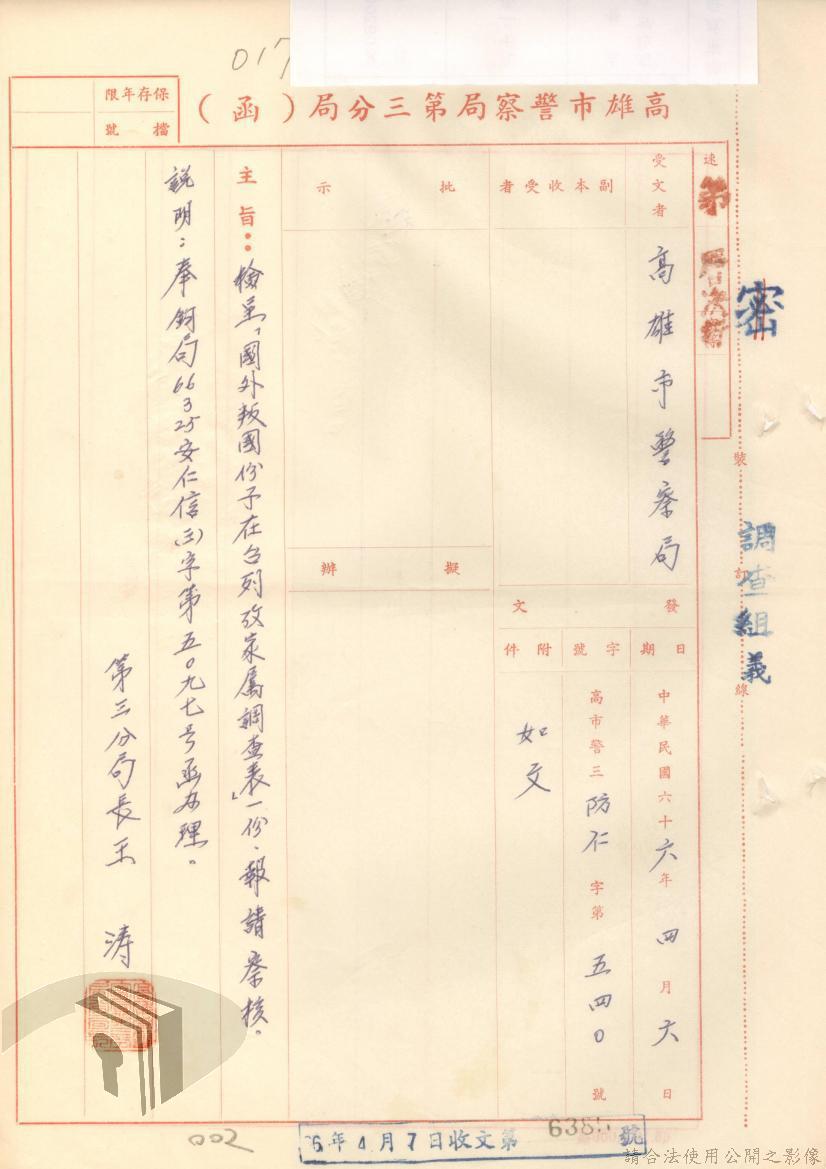 017
高雄市警察局第三分局(函)
保存年限
檔號
速
密
受文者
高雄市警察局
副本收受者
批示
擬辦
發文
日期
中華民國六十六年四月六日
字號
高市警三防仁字第五四0號
附件
如文
主旨：檢呈「國外叛國份子在台列攷家屬調查表」一份，報請察核。
說明：奉鈞局66 3 25安仁信(三)字第五0九七号函办理。
第三分局長王 涛
裝
訂
線
調查組義
6年4月7日收文第
號
002
請合法使用公開之影像